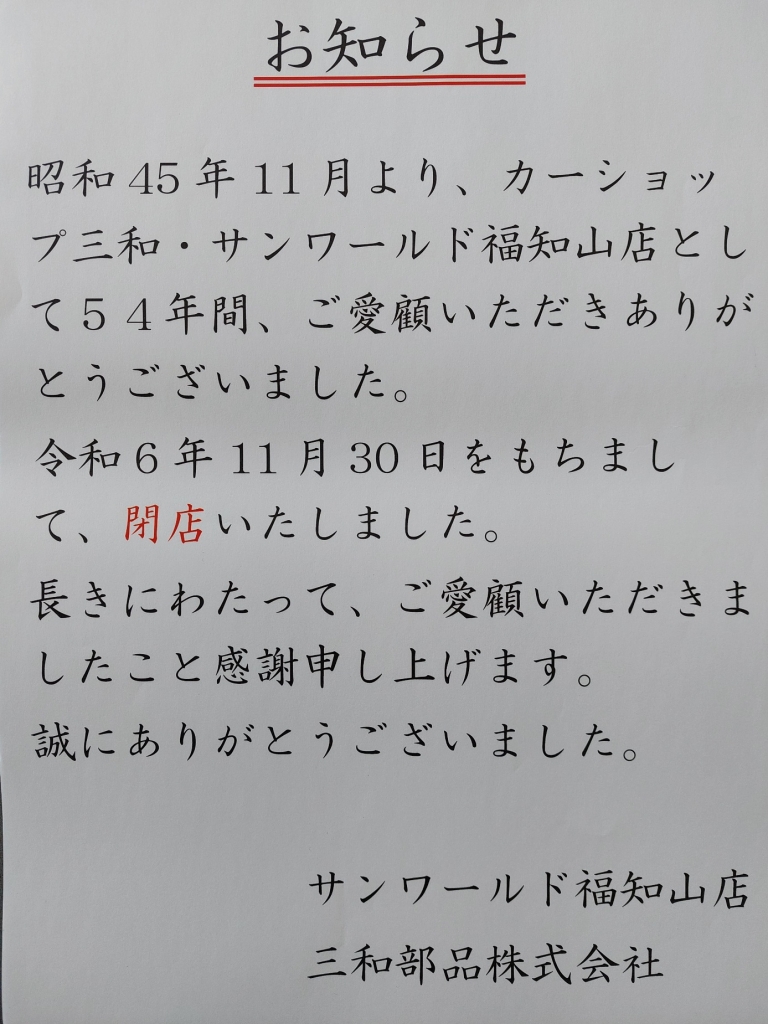 お知らせ
昭和45年11月より、カーショッ
プ三和・サンワールド福知山店とし
て５４年間、ご愛顧いただきありが
とうございました。
令和６年11月30日をもちまし
て、閉店いたしました。
長きにわたって、ご愛顧いただきま
したこと感謝申し上げます。
誠にありがとうございました。
サンワールド福知山店
三和部品株式会社